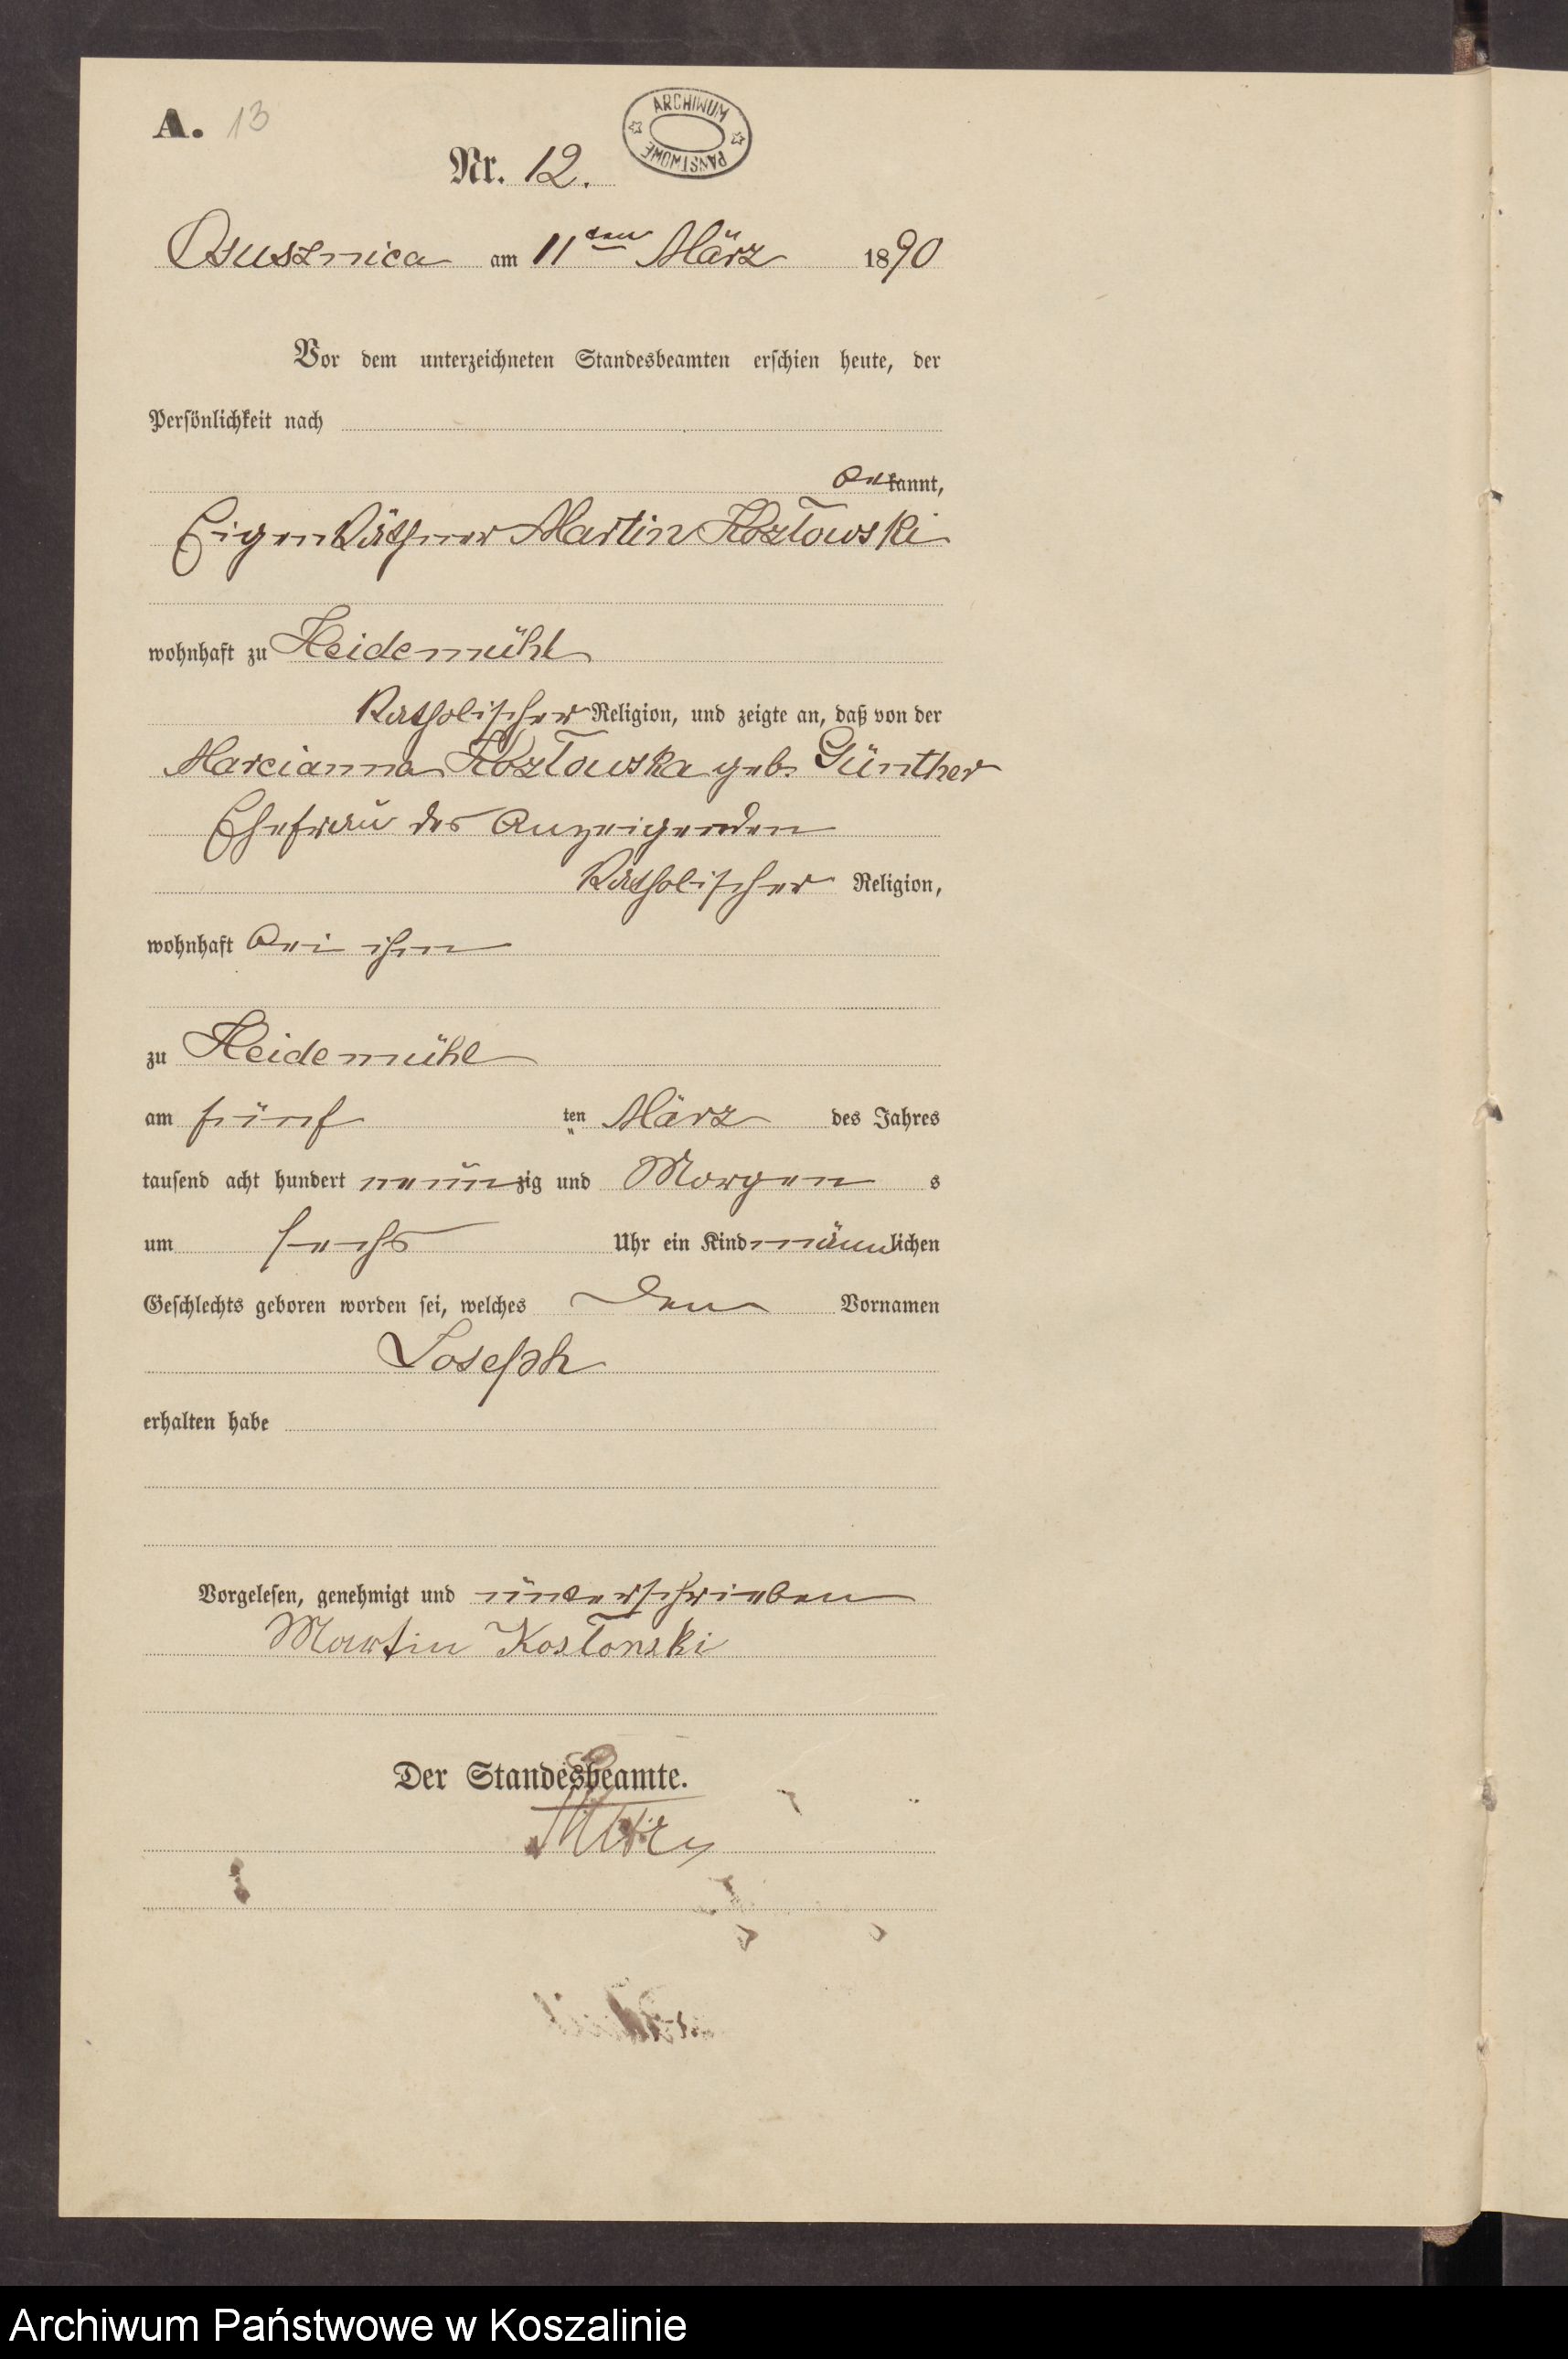 A. 13
ARCHIWUM PAŃSTWOWE
Nr. 12.
Ossusznica am 11ten März 1890
Vor dem unterzeichneten Standesbeamten erschien heute, der
Persönlichkeit nach
bekannt,
Eigenkäthner Martin Kozłowski
wohnhaft zu Heidemühl
katholischer Religion, und zeigte an, daß von der
Marcianna Kozłowska geb. Günther
Ehefrau des Anzeigenden
katholischer Religion,
wohnhaft bei ihm
zu Heidemühl
am fünf ten März des Jahres
tausend acht hundert neunzig und Morgen s
um sechs Uhr ein Kind männlichen
Geschlechts geboren worden sei, welches den Vornamen
Joseph
erhalten habe
Vorgelesen, genehmigt und unterschrieben
Martin Kosłonski
Der Standesbeamte.
Archiwum Państwowe w Koszalinie